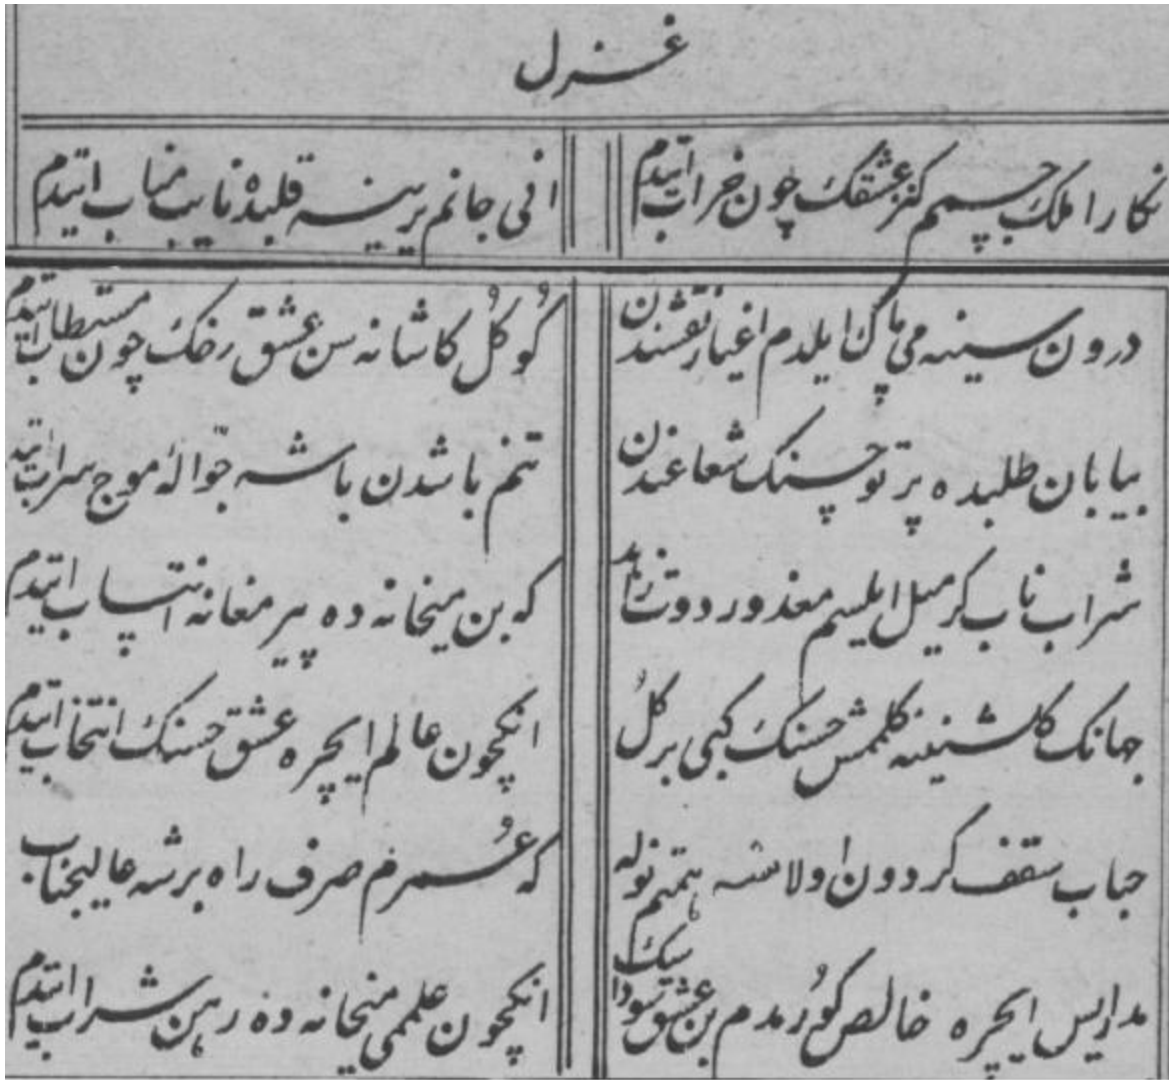 غزل
نکارا ملک جسمم کنز عشقک چون خراب ایتدم
انی جانم یرینه قلبده نایب مناب ایتدم
درون سینه می پاک ایلدم اغیار نقشندن
کُوکُل کاشانه سن عشق رخک چون مستطاب ایتدم
بیابان طلبده پرتو حسنک شعاعندن
تنم باشدن باشه جوّالهٔ موج سراب ایتدم
شراب نابه کر میل ایلسم معذور دوت زاهد
که بن میخانه ده پیر مغانه انتساب ایتدم
جهانک کلشنینه کلممش حسنک کبی بر کُل
انکچون عالم ایچره عشق حسنک انتخاب ایتدم
حباب سقف کردون اولاسه همتم نوله
که عُمرم صرف راه بر شه عالیجناب
مدارس ایچره خالص کورمدم بن عشق سوداسک
انکچون علممی میخانه ده رهن شراب ایتدم